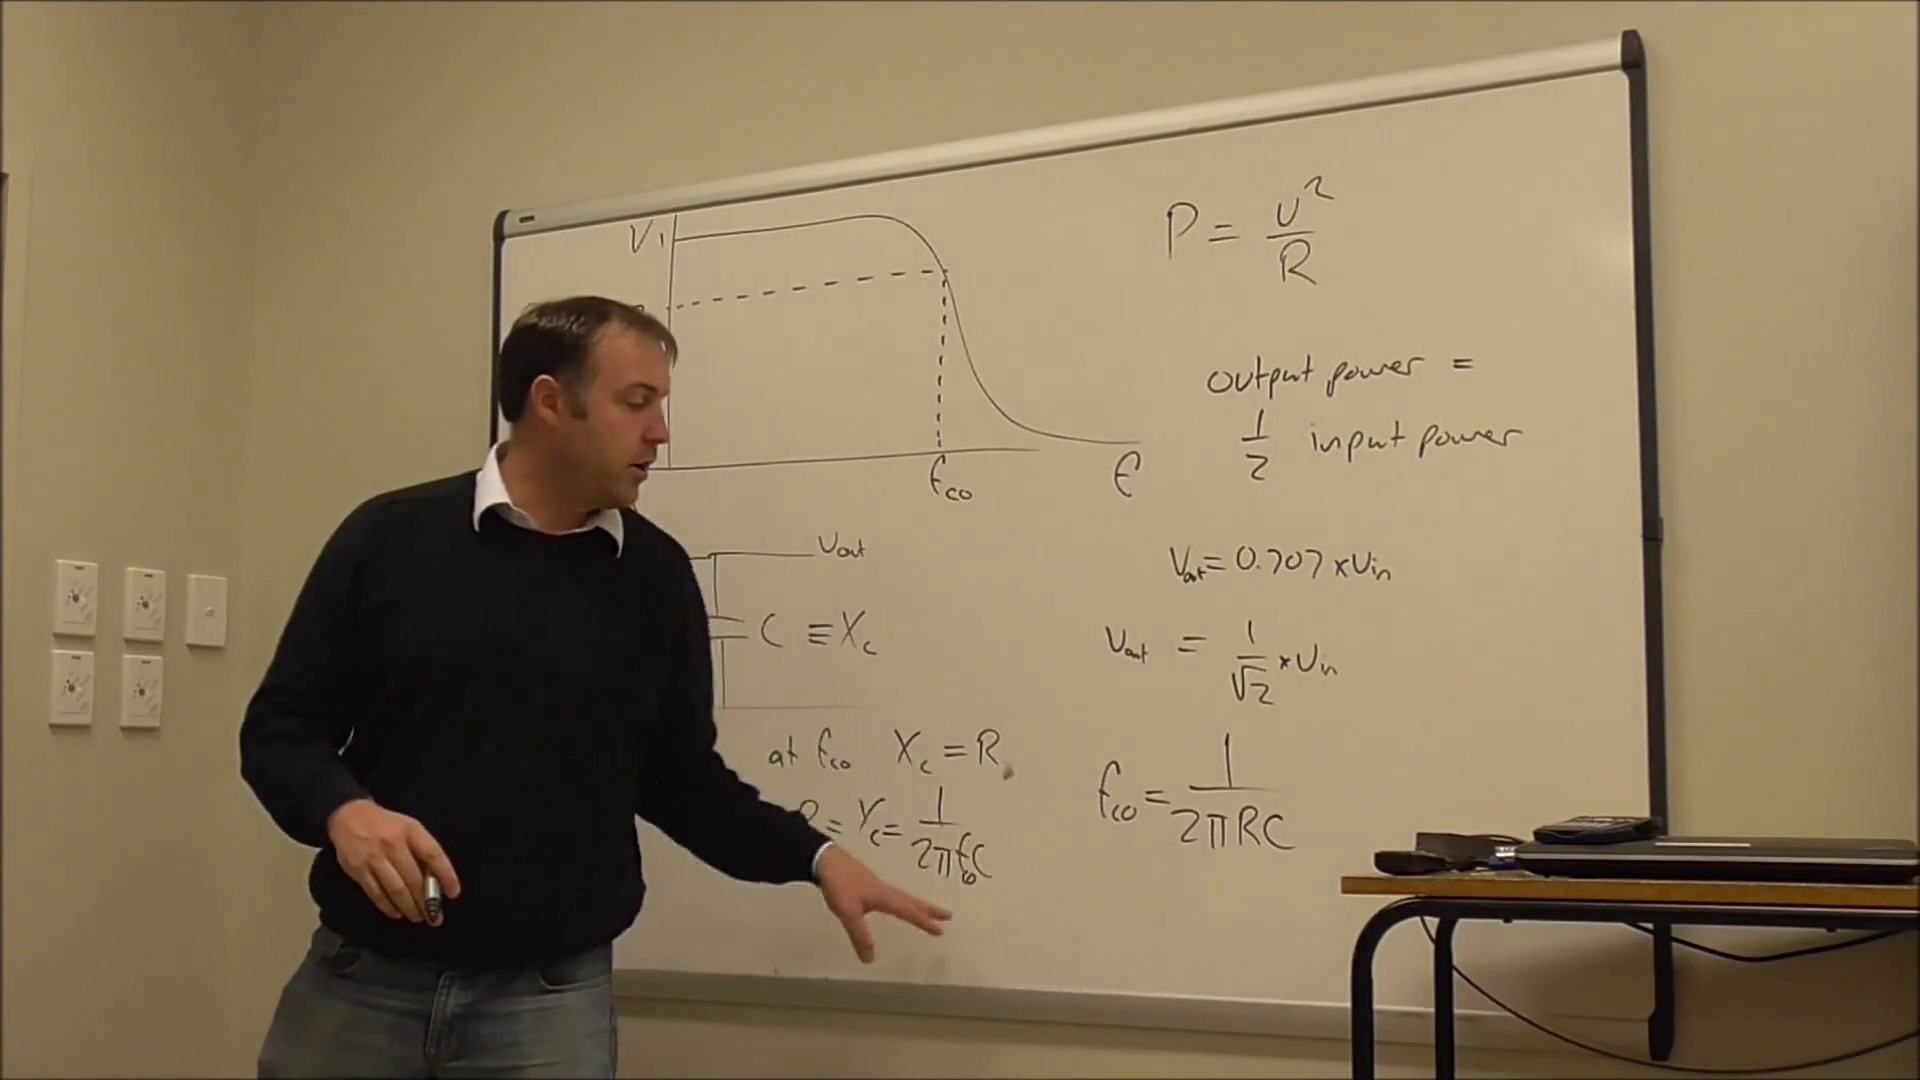 V₁
f_co
f
V_out
C ≡ X_c
at f_co X_c = R
R = X_c = 1/(2πf_coC)
P = V²/R
output power =
1/2 input power
V_out = 0.707 × V_in
V_out = 1/√2 × V_in
f_co = 1/(2πRC)